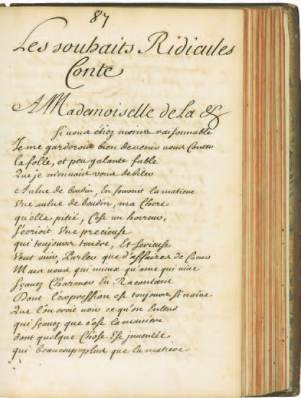 87
Les souhaits Ridicules
Conte
A Mademoiselle de la &c
Si vous étiez moins raisonnable
Je me garderois bien de venir vous Conter
la folle, et peu galante fable
Que je m'en vais vous debiter
Une aulne de boudin, ma Chere
quelle pitié, C'est un horreur,
s'ecrioit Une precieuse
qui toujours tendre, et serieuse
Veut ouir parler que d'affaires de Coeur
Mais vous qui mieux qu'ame qui vive
Sçavez Charmer En Racontant
Dont l'expression est toujours si naïve
Que l'on croit voir ce qu'on Entend
qui sçavez que c'est la maniere
dont quelque Chose Est inventé
qui beaucoup plus que la matiere